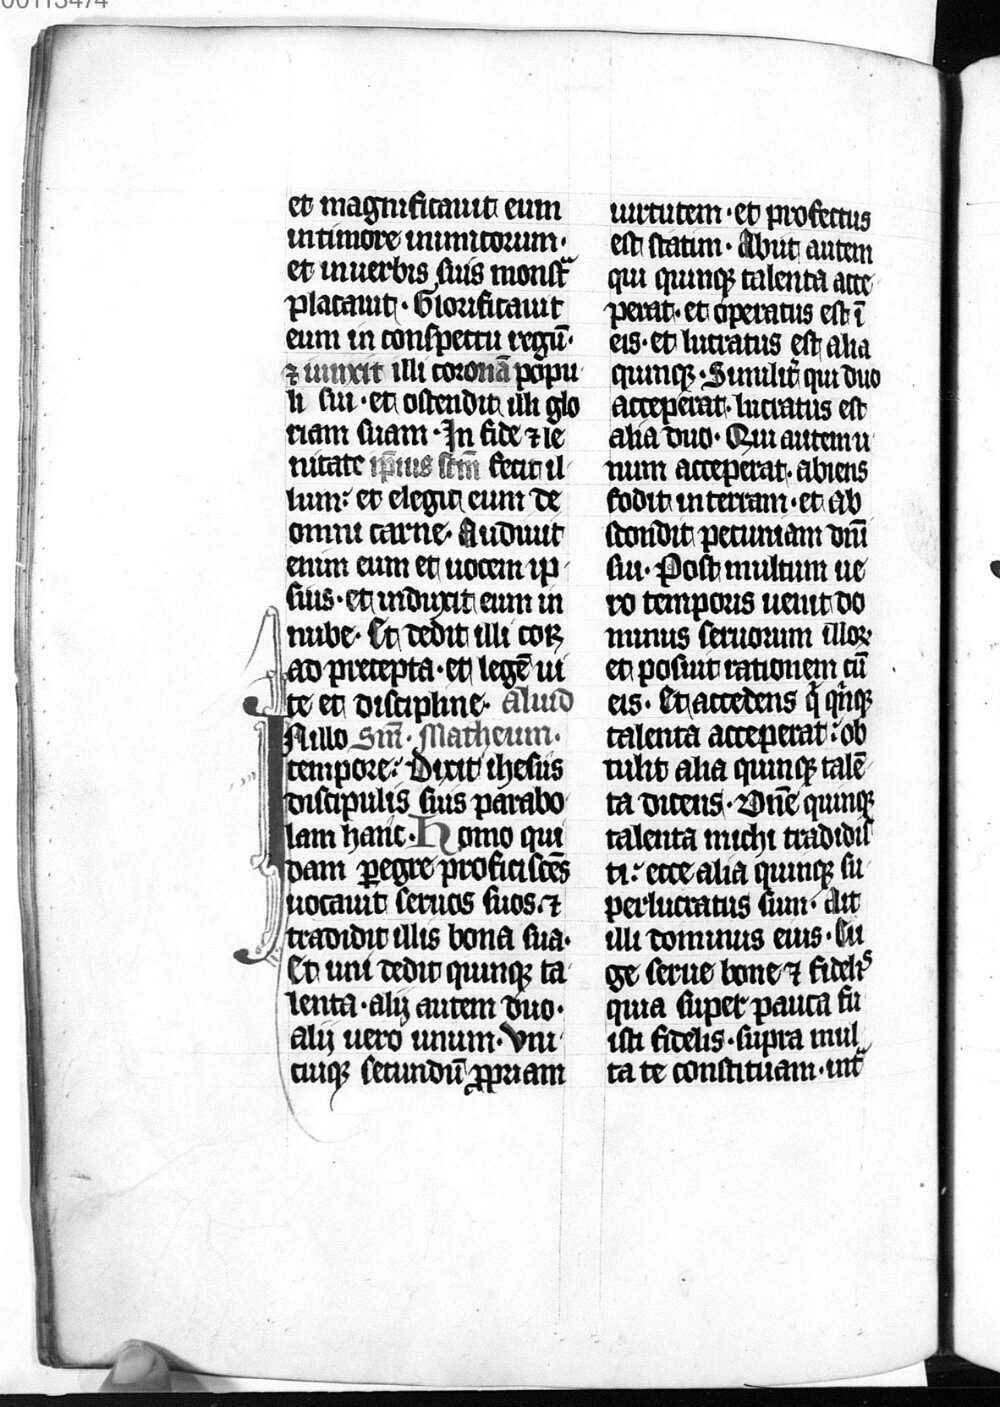 00113474
et magnificauit eum
in timore inimicorum·
et in uerbis suis monst̄
placauit· Glorificauit
eum in conspectu regū·
⁊ iunxit illi coronā popu
li sui· et ostendit illi glo
riam suam· In fide ⁊ le
nitate ip̄ius sc̄m fecit il
lum: et elegit eum de
omni carne· Audiuit
enim eum et uocem ip
sius· et induxit eum in
nube· Et dedit illi coꝝ
ad precepta· et legē ui
te et discipline· Aliud
In illo Sm̄· Matheum·
tempore: Dixit ihesus
discipulis suis parabo
lam hanc· Homo qui
dam ꝑegre proficiscēs
uocauit seruos suos· ⁊
tradidit illis bona sua·
Et uni dedit quinqꝫ ta
lenta· alij autem duo·
alij uero unum· Vni
cuiqꝫ secundū ꝓpriam
uirtutem· et profectus
est statim· Abiit autem
qui quinqꝫ talenta acce
perat· et operatus est ī
eis· et lucratus est alia
quinqꝫ· Similit̄ qui duo
acceperat· lucratus est
alia duo· Qui autem u
num acceperat· abiens
fodit in terram· et ab
scondit pecuniam dn̄i
sui· Post multum ue
ro temporis uenit do
minus seruorum illoꝝ
et posuit rationem cū
eis· Et accedens q̇ qͥnqꝫ
talenta acceperat: ob
tulit alia quinqꝫ talē
ta dicens· Dn̄e quinqꝫ
talenta michi tradidis
ti: ecce alia quinqꝫ su
perlucratus sum· Ait
illi dominus eius· Eu
ge serue bone ⁊ fidelis
quia super pauca fu
isti fidelis· supra mul
ta te constituam· int̄